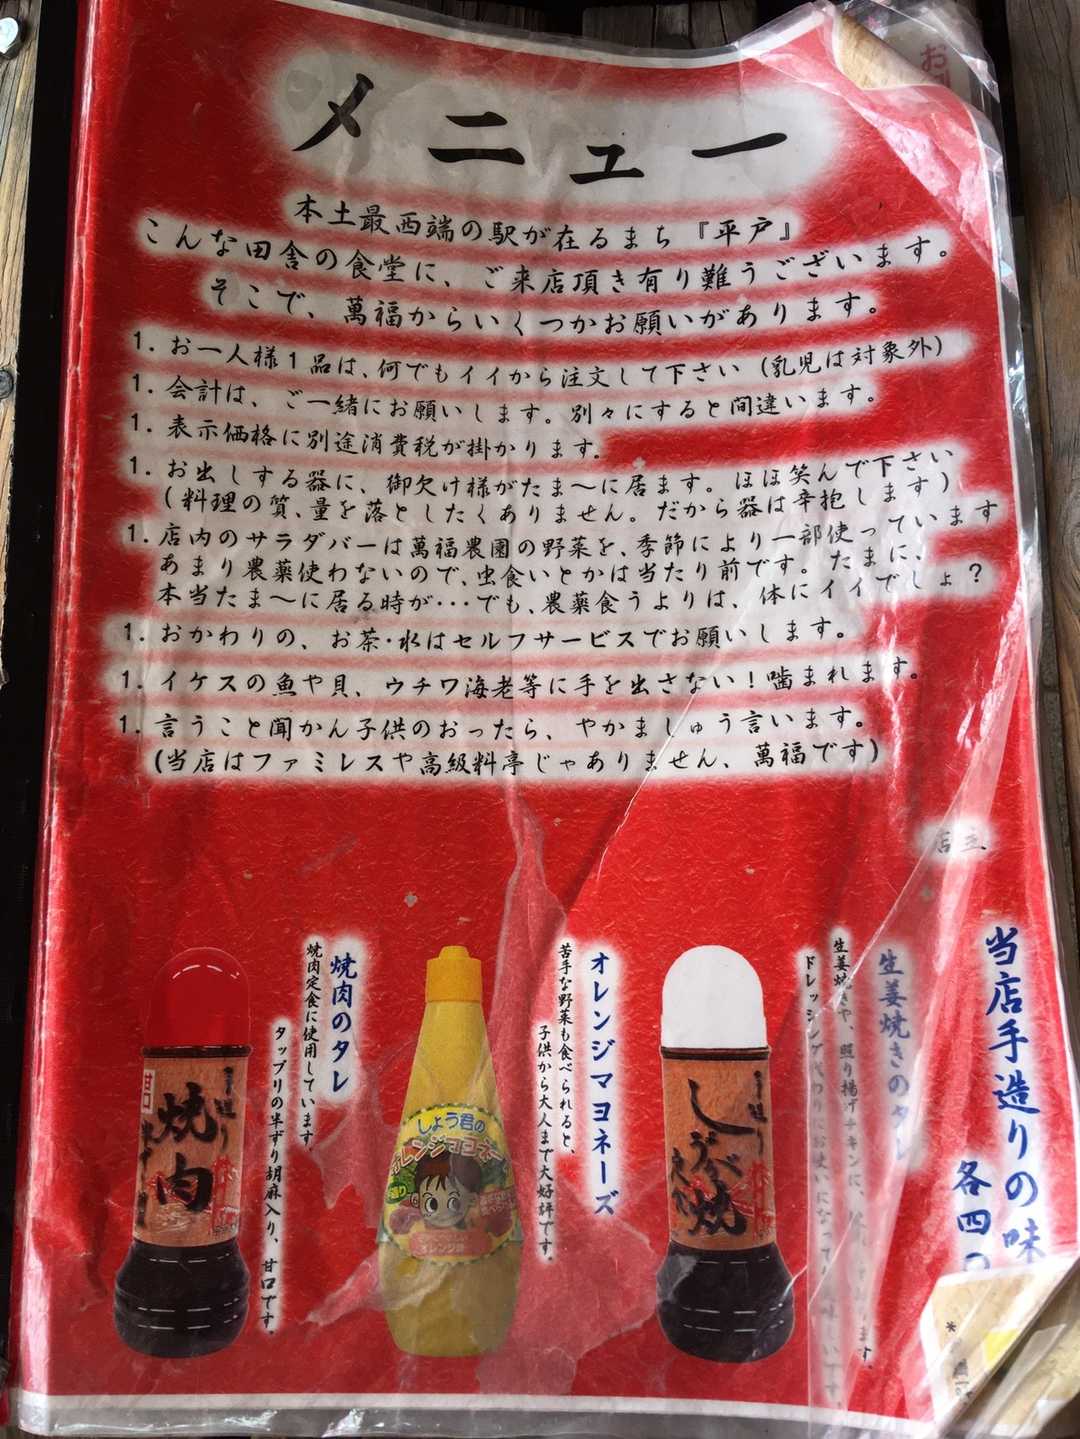 メニュー
本土最西端の駅が在るまち『平戸』
こんな田舎の食堂に、ご来店頂き有り難うございます。
そこで、萬福からいくつかお願いがあります。
1. お一人様1品は、何でもイイから注文して下さい(乳児は対象外)
1. 会計は、ご一緒にお願いします。別々にすると間違います。
1. 表示価格に別途消費税が掛かります。
1. お出しする器に、御欠け様がたま〜に居ます。ほほ笑んで下さい
(料理の質、量を落としたくありません。だから器は辛抱します)
1. 店内のサラダバーは萬福農園の野菜を、季節により一部使っています
あまり農薬使わないので、虫食いとかは当たり前です。たまに、
本当たま〜に居る時が・・・でも、農薬食うよりは、体にイイでしょ?
1. おかわりの、お茶・水はセルフサービスでお願いします。
1. イケスの魚や貝、ウチワ海老等に手を出さない!噛まれます。
1. 言うこと聞かん子供のおったら、やかましゅう言います。
(当店はファミレスや高級料亭じゃありません、萬福です)
店主
当店手造りの味
各四
生姜焼きのタレ
生姜焼きや、照り揚げチキンに、
ドレッシング代わりにお使いになって
オレンジマヨネーズ
苦手な野菜も食べられると、
子供から大人まで大好評です。
焼肉のタレ
焼肉定食に使用しています。
タップリの半ずり胡麻入り、甘口です。
手造り
焼肉
甘口
しょう君の
オレンジマヨネーズ
手造り
しょうが焼